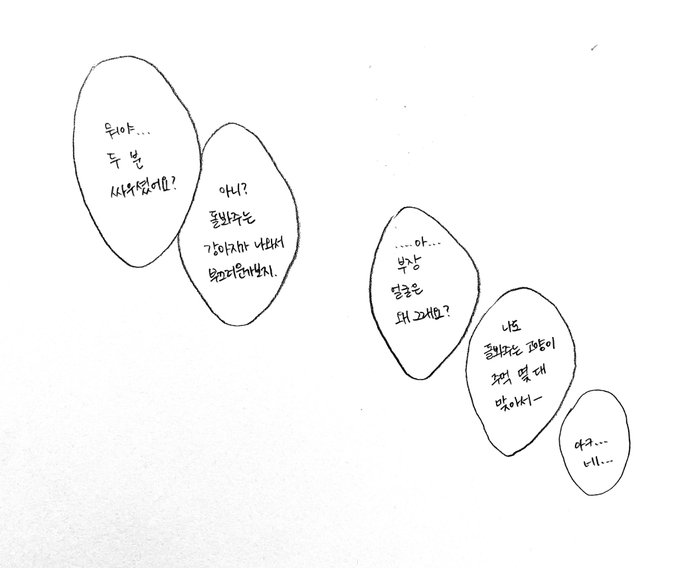 뭐야...
두 분
싸우셨어요?
아니?
돌봐주는
강아지가 나와서
부끄러운가보지.
....아...
부장
얼굴은
왜 그래요?
나도
돌봐주는 고양이
주먹 몇 대
맞아서ㅡ
아ㅋ...
네...